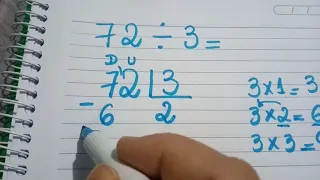 72 ÷ 3 =
D U
72 | 3
- 6 2
3 × 1 = 3
3 × 2 = 6
3 × 3 =